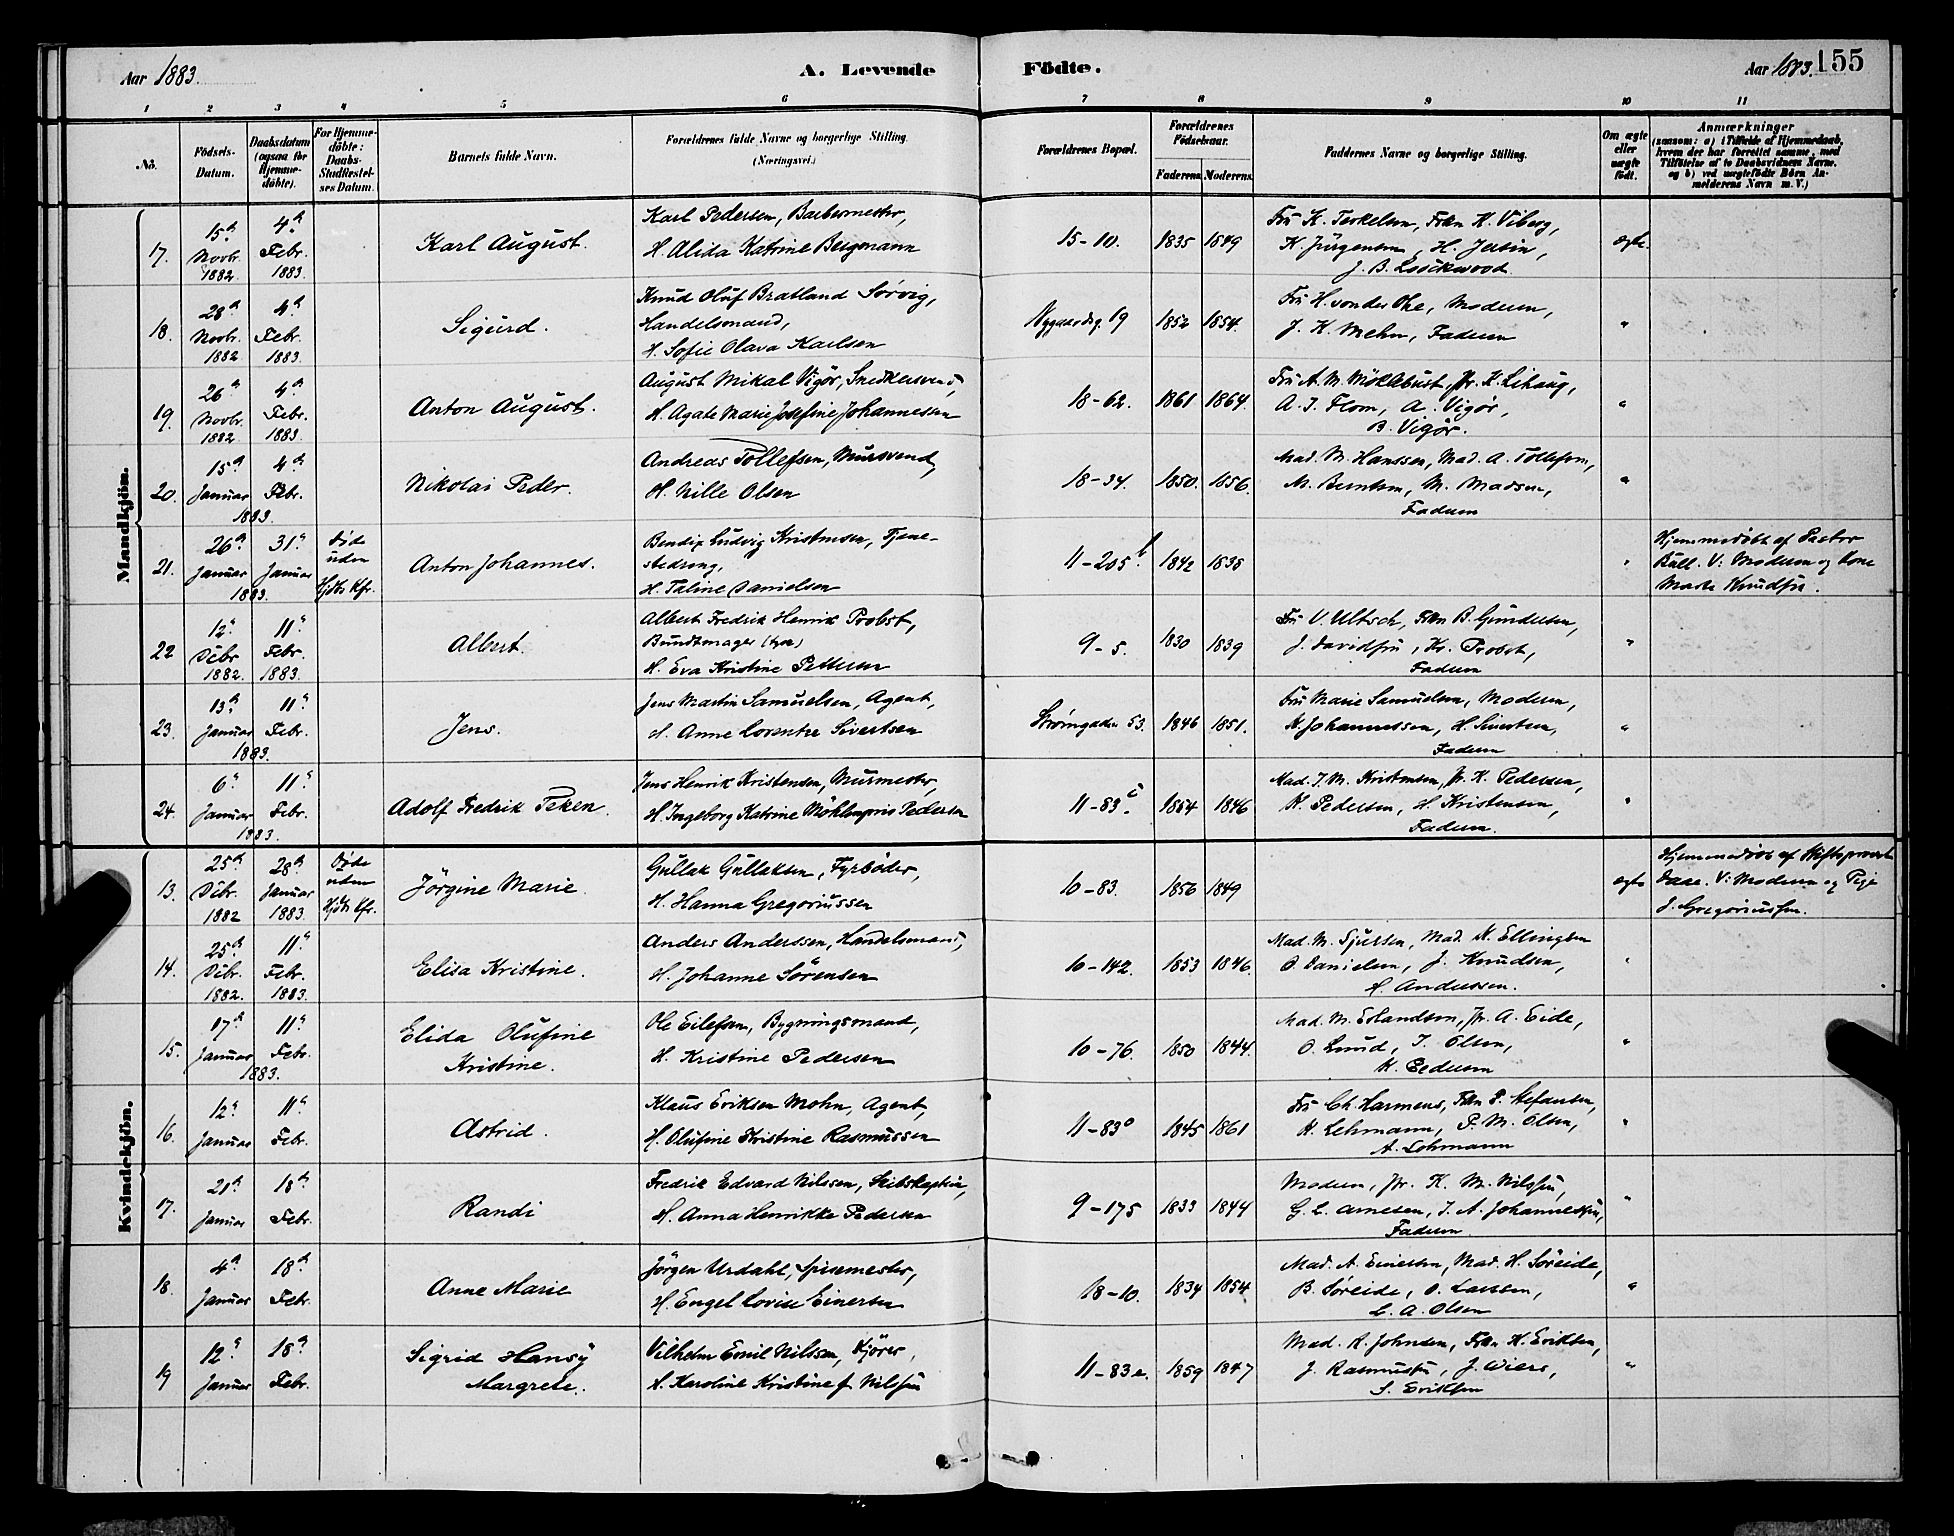 Aar 1883. A. Levende Födte. Aar 1883. 155
1 2 3 4 5 6 7 8 9 10 11
No. Födsels-Datum. Daabsdatum (ogsaa for Hjemme-döbte). For Hjemme-döbte: Daabs-Stadfæstel-ses Datum. Barnets fulde Navn. Forældrenes fulde Navne og borgerlige Stilling. (Næringsvei.) Forældrenes Bopæl. Forældrenes Födselsaar. Faderens. Moderens. Faddernes Navne og borgerlige Stilling. Om ægte eller uægte födt. Anmærkninger (saasom: a) i Tilfælde af Hjemmedaab, hvem der har forrettet samme, med Tilföielse af to Daabsvidners Navne, og b) ved uægtefödte Börn An-melderens Navn m. V.)
Mandkjön.
17. 15de Novbr. 1882. 4de Febr. 1883. Karl August. Karl Pedersen, Barbermester,
H. Alida Katrine Bergmann 15-10. 1835 1849 Fru K. Terkelsen, Frkn K. Viberg,
K. Jürgensen, H. Jersin,
J. B. Loockwood. ægte.
18. 28de Novbr. 1882 4de Febr. 1883. Sigurd. Knud Oluf Bratland Sörvig,
Handelsmand,
H. Sofie Olava Karlsen Nygaardsg. 19 1852 1854. Fru H. von der Ohe, Moderen,
J. K. Mehn, Faderen "
19. 26de Novbr. 1882 4de Febr. 1883. Anton August. August Mikal Vigör, Snedkersvend,
H. Agate Marie Josefine Johannessen 18-62. 1861 1864. Fru A. M. Möklebust, Pr. K. Lihaug,
A. I. Flom, A. Vigör,
B. Vigör. "
20. 15de Januar 4de Febr. 1883. Nikolai Peder. Andreas Tollefsen, Mursvend,
H. Nille Olsen 18-34. 1850. 1856. Mad. M. Hanssen, Mad. A. Tollefsen,
M. Berntsen, M. Madsen,
Faderen "
21. 26de Januar 31te Januar 1883. Døde uden Hjdbs Kfr. Anton Johannes. Bendix Ludvig Kristensen, Tjene-
stedreng,
H. Taline Danielsen 11-205 b. 1842 1838 " Hjemmedöbt af Pastor
Rüll. V: Moderen og Kone
Marta Knudsen.
22 12te Dcbr. 1882. 11te Febr. 1883. Albert. Albert Fredrik Henrik Probst,
Bundtmager (tysk)
H. Eva Kristine Pettersen 9-5. 1830 1839 Fru V. Ultsch, Frkn B. Gundersen,
J. Davidsen, Kr. Probst,
Faderen "
23. 13de Januar 11te Febr. 1883. Jens. Jens Martin Samuelsen, Agent,
H. Anne Lorentze Sivertsen Strömgaden 53. 1846 1851. Fru Marie Samuelsen, Moderen,
N. Johannessen, H. Sivertsen,
Faderen "
24. 6te Januar 11te Febr. 1883. Adolf Fredrik Teken. Jens Henrik Kristensen, Murmester,
H. Ingeborg Katrine Möhlenpris Pedersen 11-83 c. 1854 1846 Mad. J. M. Kristensen, Pr. K. Pedersen,
K. Pedersen, H. Kristensen,
Faderen. "
Kvindekjön.
13. 25de Dcbr. 1882 28de Januar 1883. Døde uden Hjdbs Kfr. Jörgine Marie. Gullak Gullaksen, Fyrböder,
H. Hanna Gregoriussen 10-83. 1856 1849 ægte Hjemmedöbt af Stiftsprovst
Daae. V: Moderen og Pige
J. Gregoriussen.
14. 25de Dcbr. 1882. 11te Febr. 1883. Elisa Kristine. Anders Anderssen, Handelsmand,
H. Johanne Sörensen 10-142. 1853 1846. Mad. M. Sjursen, Mad. K. Ellingsen
O. Danielsen, J. Knudsen,
H. Anderssen. "
15. 17de Januar 11te Febr. 1883. Elida Olufine
Kristine. Ole Eilefsen, Bygningsmand,
H. Kristine Pedersen 10-76. 1850 1844. Mad. M. Erlandsen, Pr. A. Eide,
O. Lund, I. Olsen,
K. Pedersen "
16. 12te Januar 11te Febr. Astrid. Klaus Eriksen Mohn, Agent,
H. Olufine Kristine Rasmussen 11-83 o 1845 1861 Fru Ch. Harmens, Frkn P. Stefansen,
K. Lehmann, P. M. Olsen,
A. Lohmann "
17. 21de Januar 18de Febr. Randi Fredrik Edvard Nilssen, Skibskaptein,
H. Anna Henrikke Pedersen 9-175 1833 1844 Moderen, Pr. K. M. Nilssen,
G. L. Arnesen, I. A. Johannessen,
Faderen "
18. 4de Januar 18de Febr. Anne Marie Jörgen Urdahl, Spisemester,
H. Engel Lovise Einersen 18-10. 1834 1854 Mad. A. Einersen, Mad. H. Söreide,
B. Söreide, O. Larsen,
L. A. Olsen "
19 12te Januar 18de Febr. Sigrid Hansy
Margrete. Vilhelm Emil Nilssen, Kjörer,
H. Karoline Kristine f Nilssen 11-83 e. 1859 1847 Mad. K. Johnsen, Frkn K. Eriksen,
J. Rasmussen, J. Wiers,
S. Eriksen "